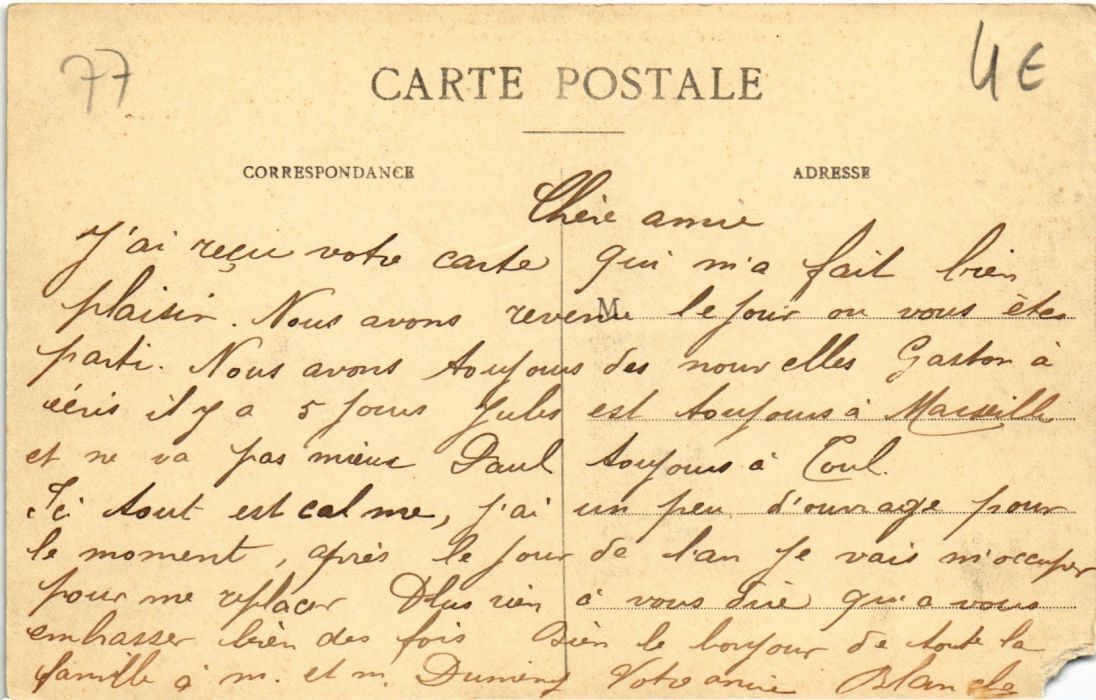 77
4€
CARTE POSTALE
CORRESPONDANCE
ADRESSE
Chère amie
J'ai reçu votre carte qui m'a fait bien
plaisir. Nous avons revenu le jour ou vous êtes
M
parti. Nous avons toujours des nouvelles Gaston à
écris il y a 5 jours Jules est toujours à Marseille
et ne va pas mieux Paul toujours à Toul.
Ici tout est calme, j'ai un peu d'ouvrage pour
le moment, après le jour de l'an je vais m'occuper
pour me replacer Plus rien à vous dire qu'a vous
embrasser bien des fois Bien le bonjour de toute la
famille à m. et m. Votre amie Blanche